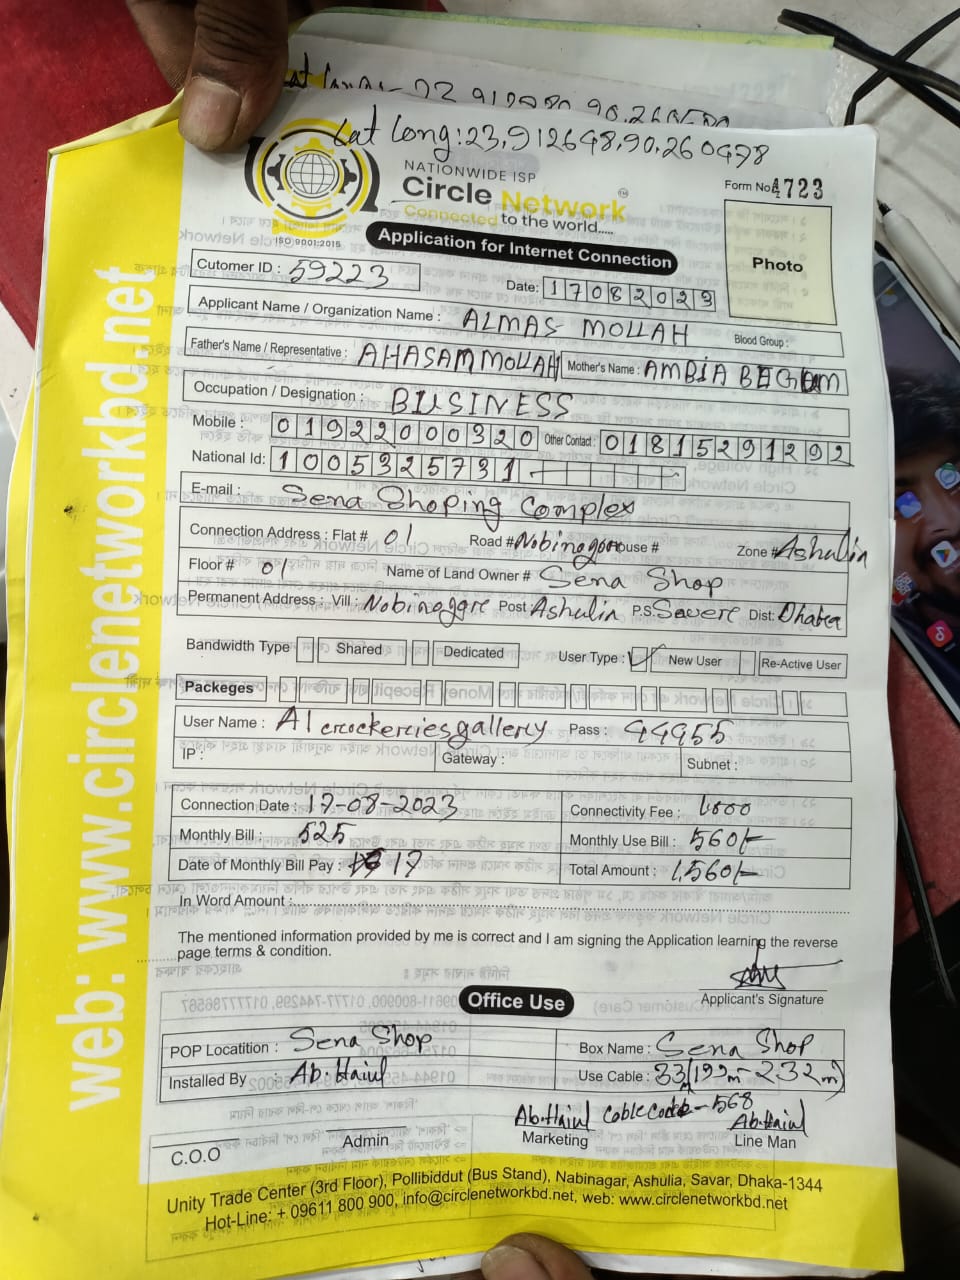 Lat Long: 23.912648, 90.260478
NATIONWIDE ISP
Circle Network
TM
Connected to the world.....
ISO 9001:2015
Form No. 4723
Application for Internet Connection
Photo
Cutomer ID : 59223
Date: 17082023
Applicant Name / Organization Name : ALMAS MOLLAH
Blood Group :
Father's Name / Representative : AHASAM MOLLAH Mother's Name : AMBIA BEGUM
Occupation / Designation : BUSINESS
Mobile : 01922000320 Other Contact : 01815291292
National Id: 1005325731
E-mail : Sena Shoping Complex
Connection Address : Flat # 01 Road # Nobinagor House # Zone # Ashulia
Floor # 01 Name of Land Owner # Sena Shop
Permanent Address : Vill : Nobinaggre Post Ashulin P.S: Savere Dist: Dhaka
Bandwidth Type Shared Dedicated User Type : New User Re-Active User
Packeges
User Name : A1 crockerciesgallery Pass : 44955
IP : Gateway : Subnet :
Connection Date : 17-08-2023 Connectivity Fee : 1000
Monthly Bill : 525 Monthly Use Bill : 560/-
Date of Monthly Bill Pay : 17 Total Amount : 1,560/-
In Word Amount :
The mentioned information provided by me is correct and I am signing the Application learning the reverse
page terms & condition.
Applicant's Signature
Office Use
POP Locatition : Sena Shop Box Name : Sena Shop
Installed By Ab. Haiul Use Cable : 33m (199m - 232m)
Ab. Haiul Cable code - 568 Ab. Haiul
C.O.O Admin Marketing Line Man
Unity Trade Center (3rd Floor), Pollibiddut (Bus Stand), Nabinagar, Ashulia, Savar, Dhaka-1344
Hot-Line: + 09611 800 900, info@circlenetworkbd.net, web: www.circlenetworkbd.net
web: www.circlenetworkbd.net